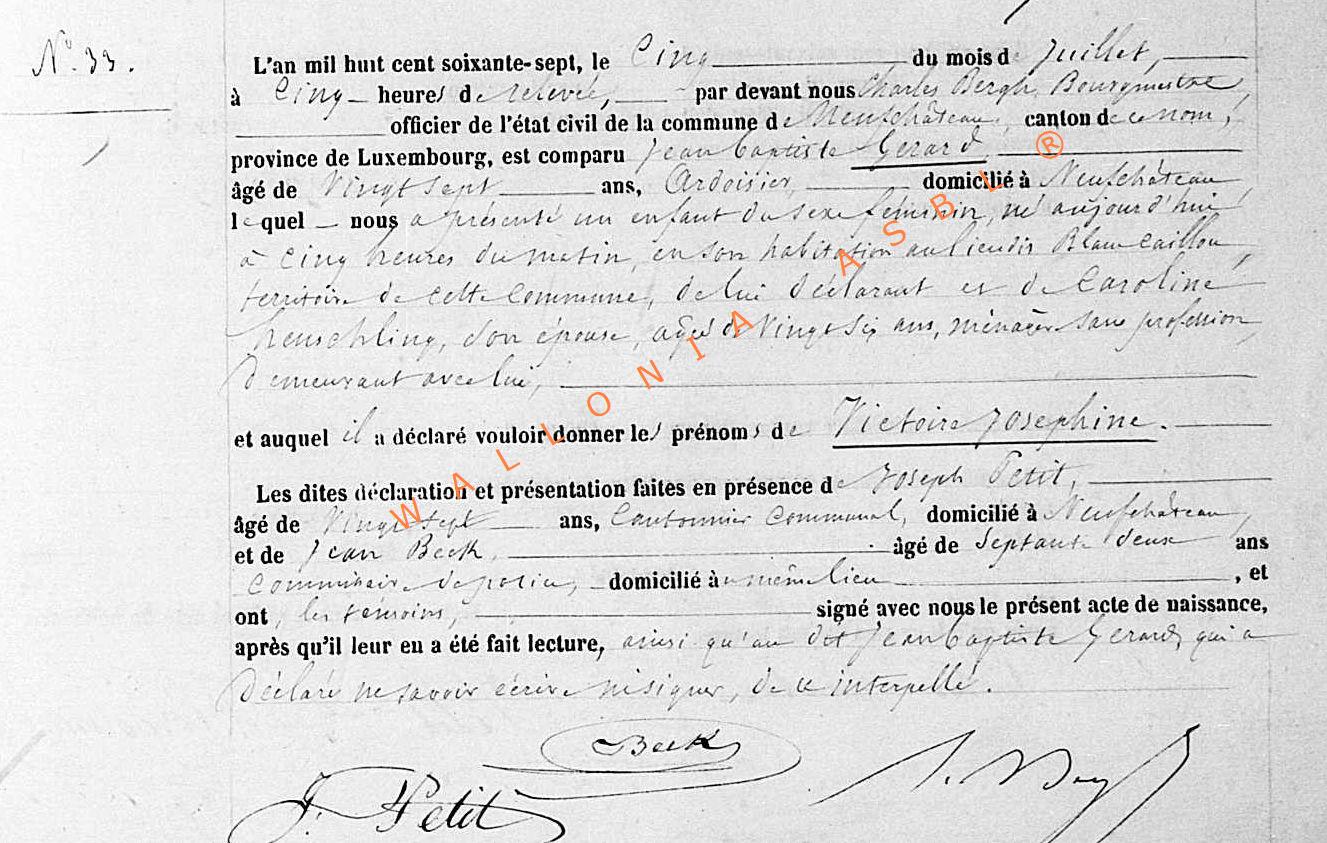 N° 33.
L'an mil huit cent soixante-sept, le Cinq du mois de Juillet,
à Cinq heures de relevée, par devant nous Charles Bergh, Bourgmestre,
officier de l'état civil de la commune de Neufchâteau, canton de ce nom,
province de Luxembourg, est comparu Jean Baptiste Gerard
âgé de Vingt sept ans, Ardoisier, domicilié à Neufchâteau,
lequel nous a présenté un enfant du sexe féminin, né aujourd'hui
à Cinq heures du matin, en son habitation au lieu dit Blanc Caillou,
territoire de cette Commune, de lui déclarant et de Caroline
heuschling, son épouse, agée de Vingt Six ans, ménagère sans profession,
Demeurant avec lui,
et auquel il a déclaré vouloir donner les prénoms de Victoire Josephine.
Les dites déclaration et présentation faites en présence de Joseph Petit,
âgé de Vingt sept ans, Cantonnier Communal, domicilié à Neufchâteau,
et de Jean Beck, âgé de Septante deux ans
Commissaire de police, domicilié au même lieu, et
ont, les témoins, signé avec nous le présent acte de naissance,
après qu'il leur en a été fait lecture, ainsi qu'au dit Jean Baptiste Gerard, qui a
Déclaré ne savoir écrire ni signer, de ce interpellé.
Beck
J. Petit
WALLONIA ASBL ®